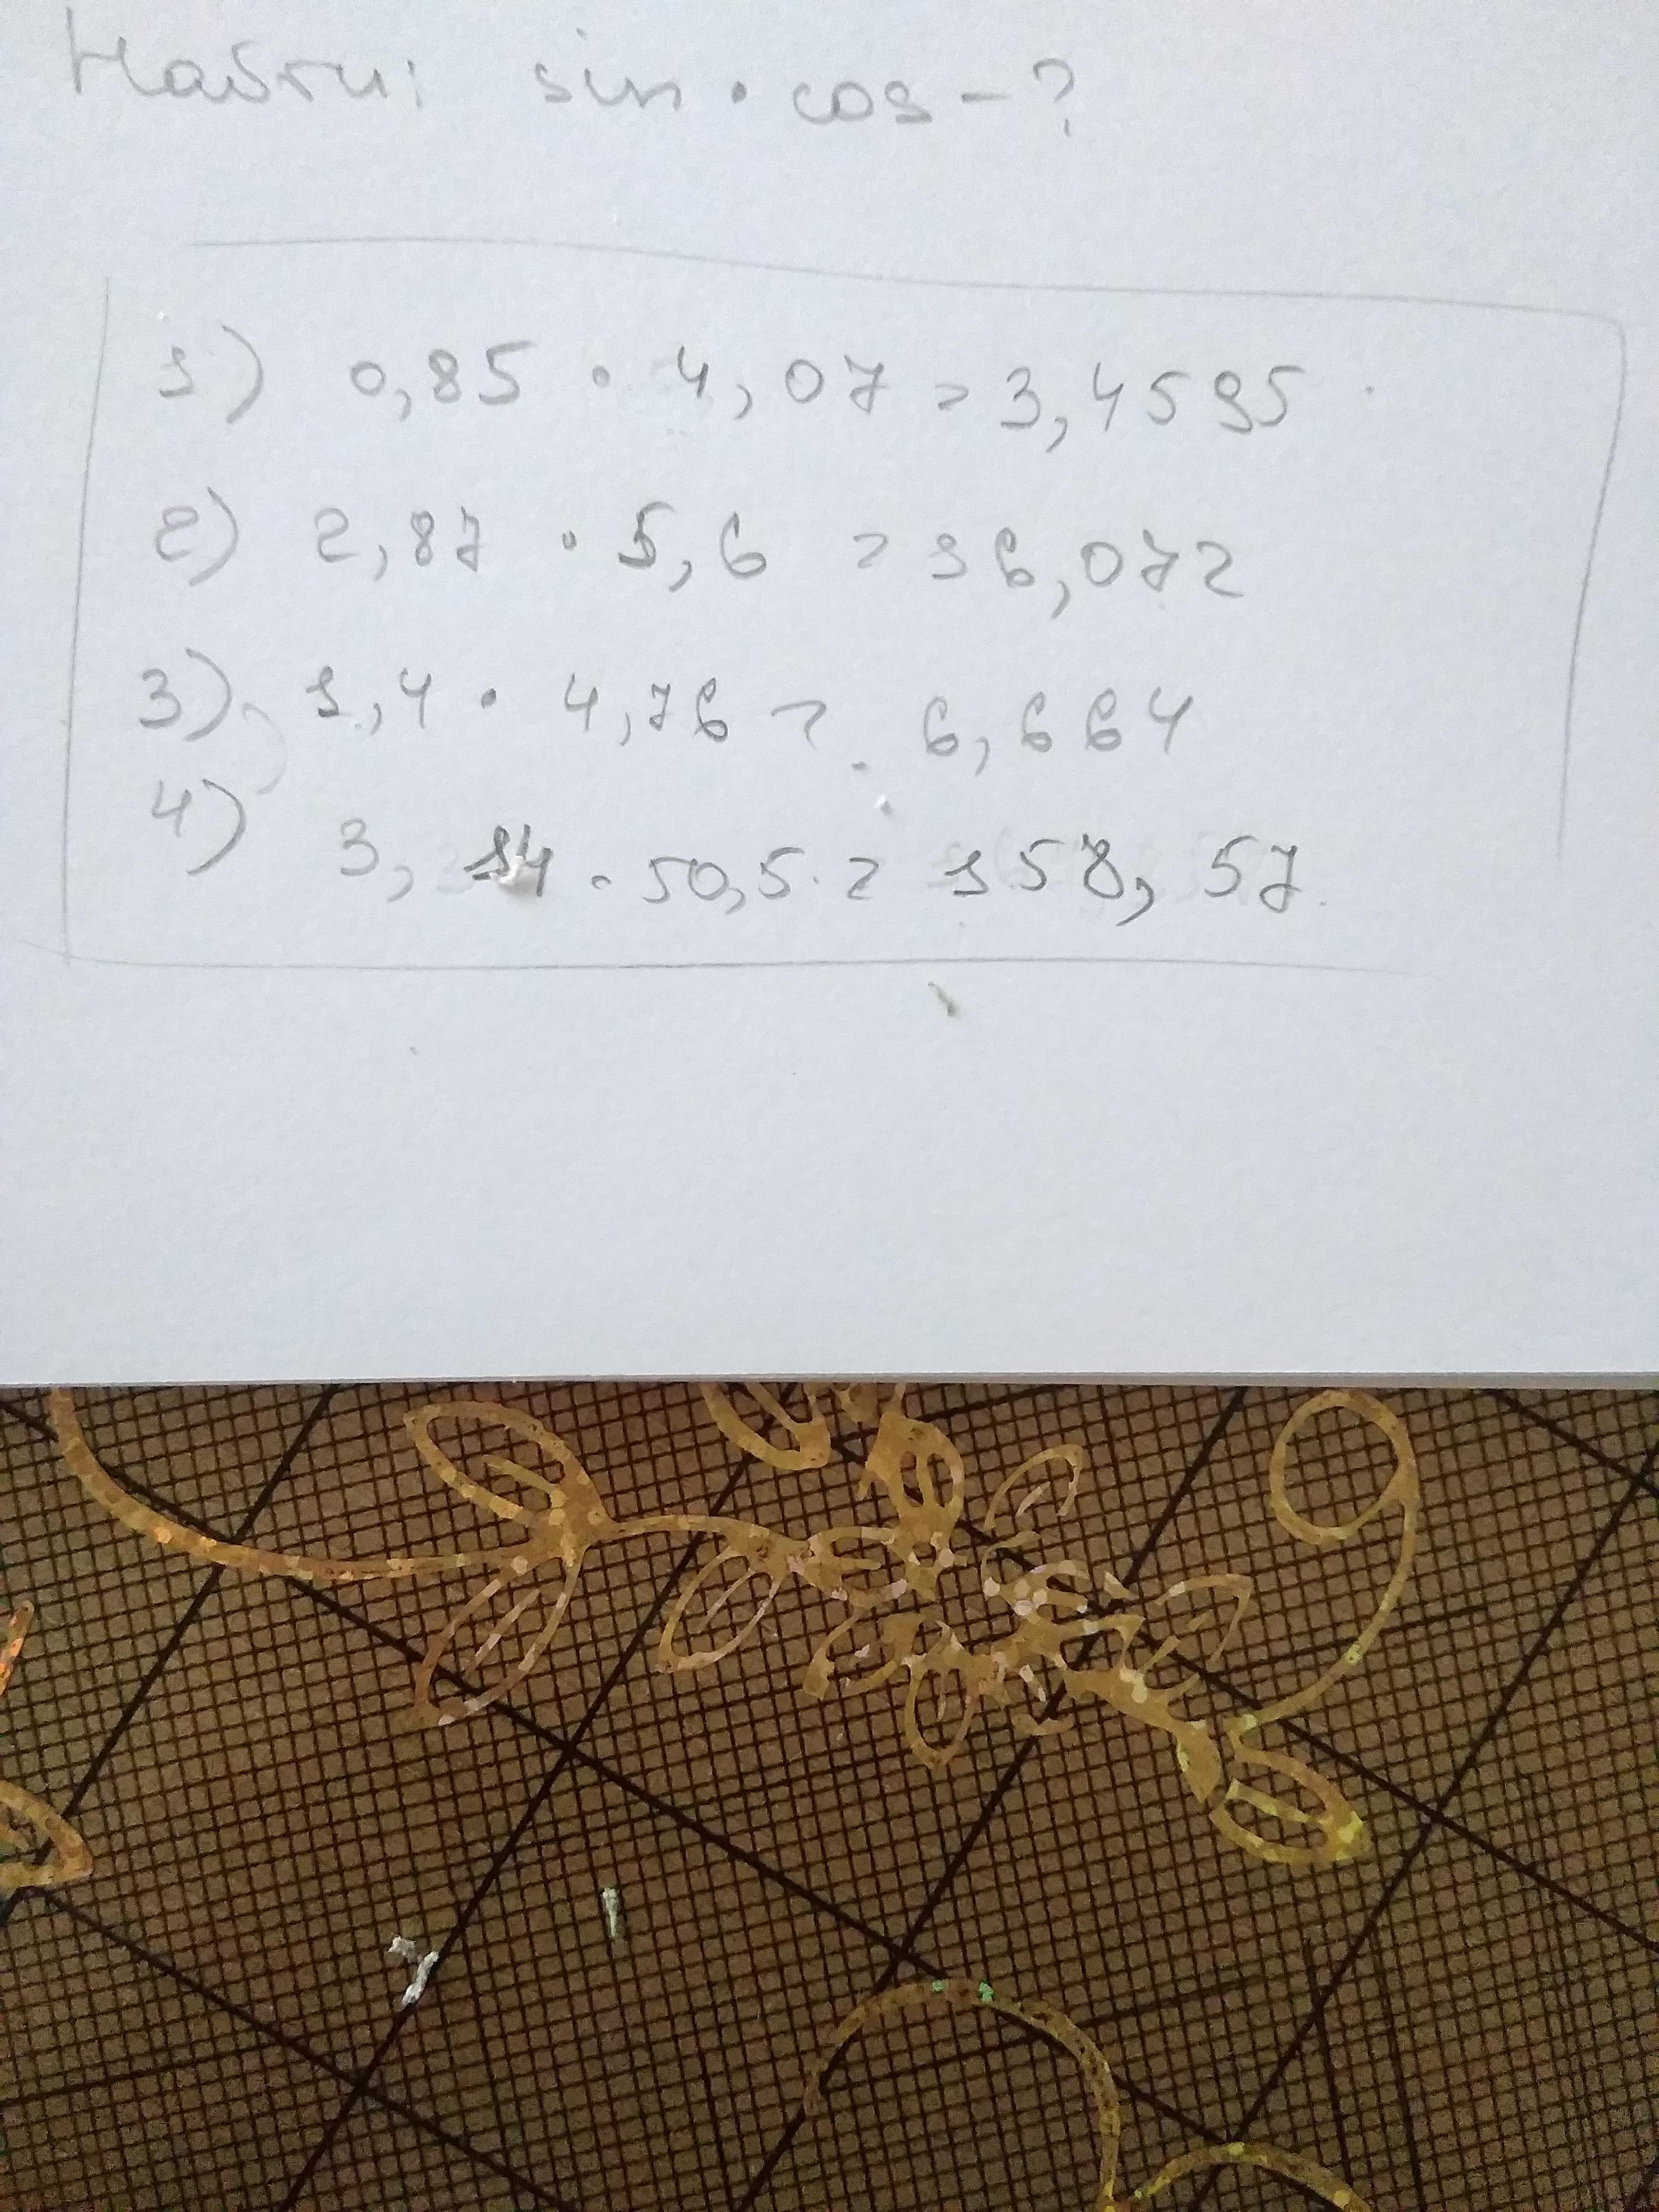 Найти: sin · cos - ?
1) 0,85 · 4,07 = 3,4595
2) 2,87 · 5,6 = 16,072
3) 1,4 · 4,76 = 6,664
4) 3,14 · 50,5 = 158,57